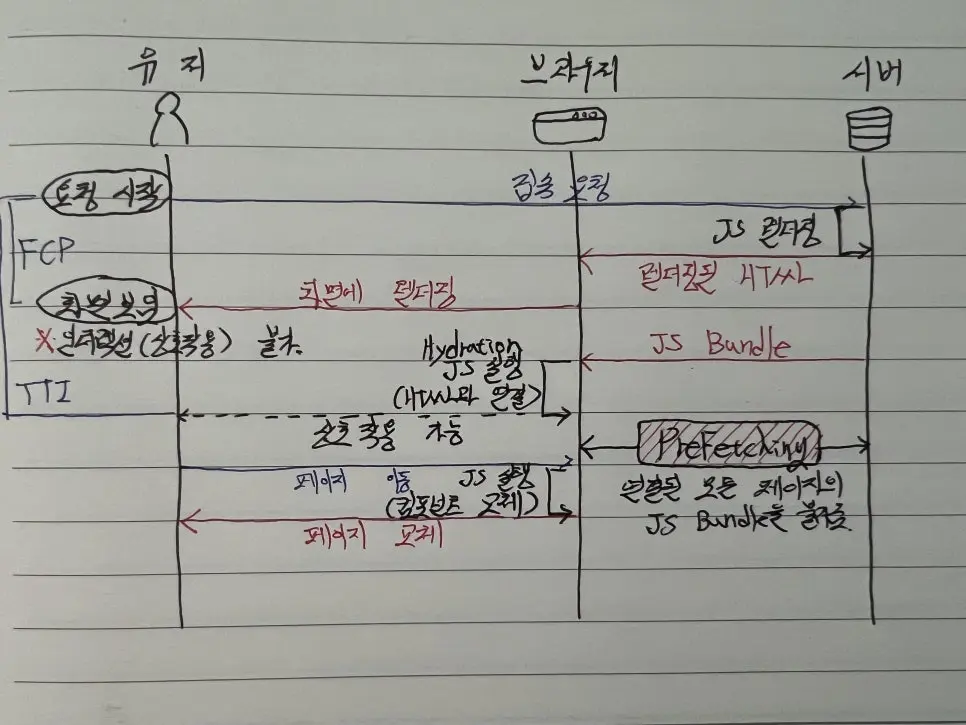 유저
브라우저
서버
요청 시작
접속 요청
JS 렌더링
FCP
렌더링된 HTML
화면에 렌더링
화면 보임
※ 인터렉션 (상호작용) 불가.
JS Bundle
Hydration
JS 실행
(HTML과 연결)
TTI
상호 작용 가능
PreFetching
페이지 이동
JS 실행
(컴포넌트 교체)
연결된 모든 페이지의
JS Bundle을 불러옴
페이지 교체